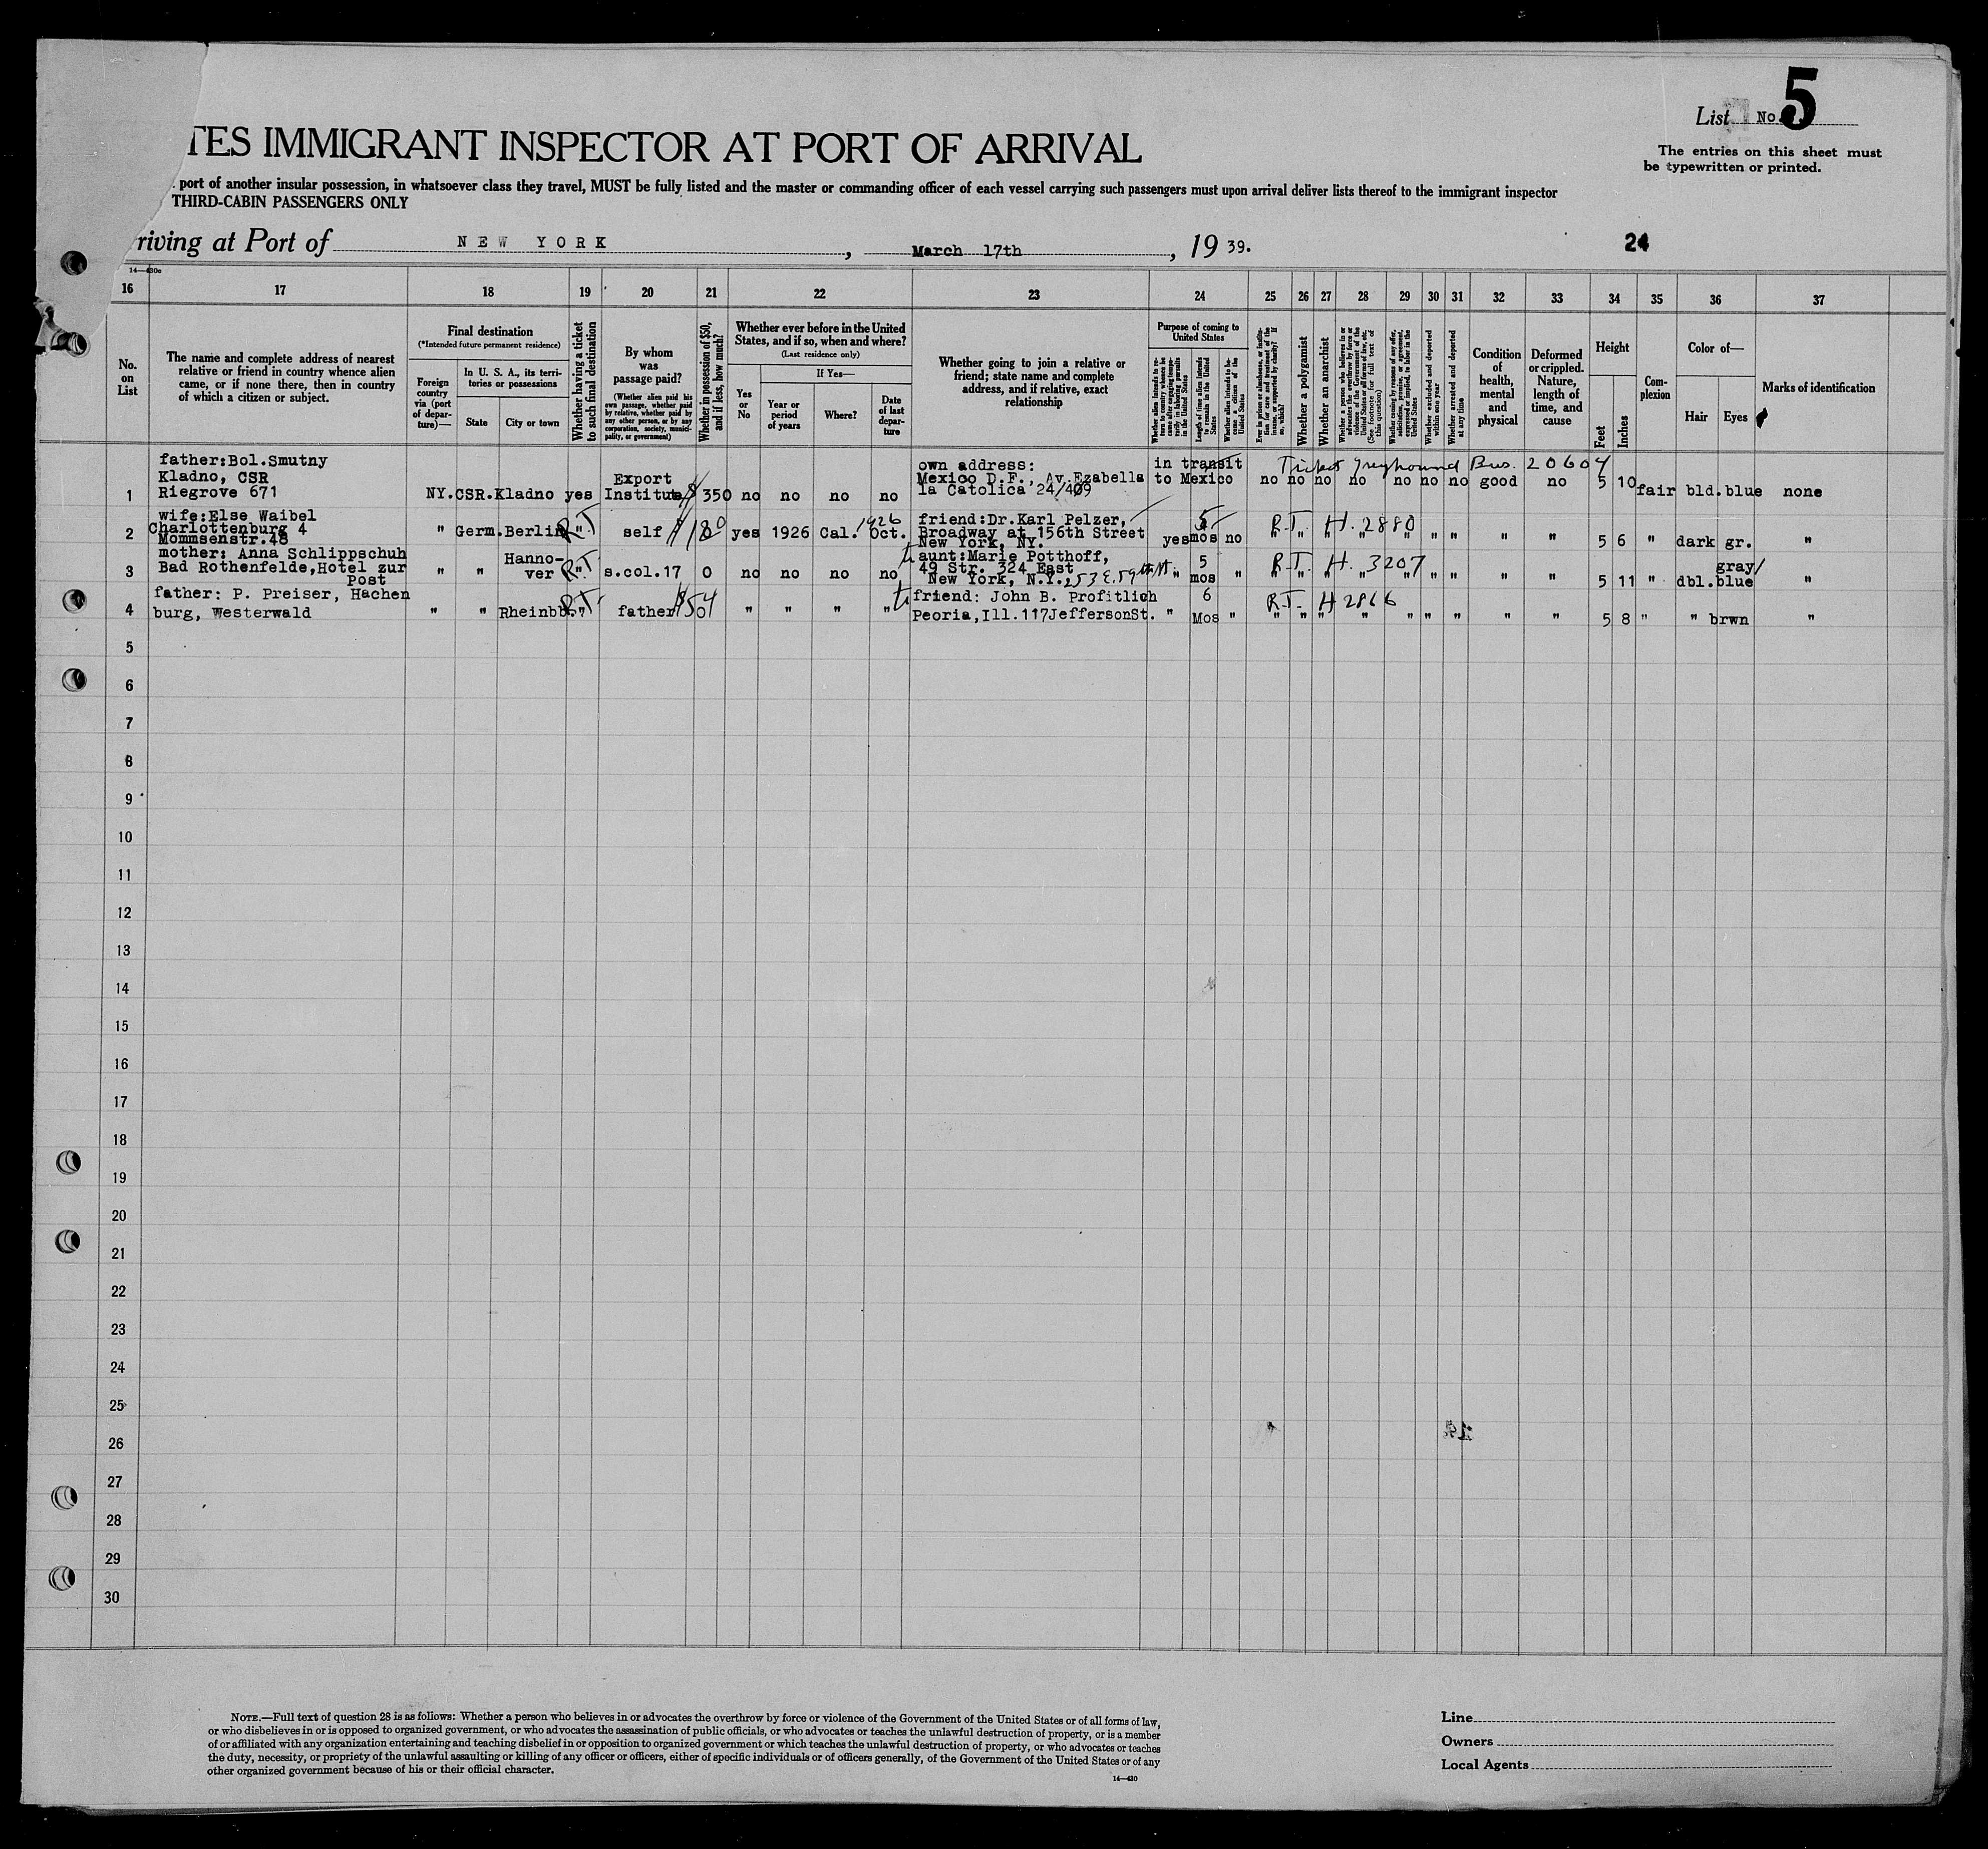 List No. 5
The entries on this sheet must
be typewritten or printed.
TES IMMIGRANT INSPECTOR AT PORT OF ARRIVAL
port of another insular possession, in whatsoever class they travel, MUST be fully listed and the master or commanding officer of each vessel carrying such passengers must upon arrival deliver lists thereof to the immigrant inspector
THIRD-CABIN PASSENGERS ONLY
riving at Port of NEW YORK, March 17th, 19 39.
24
14—430c
16 17 18 19 20 21 22 23 24 25 26 27 28 29 30 31 32 33 34 35 36 37
No. on List
The name and complete address of nearest relative or friend in country whence alien came, or if none there, then in country of which a citizen or subject.
Final destination
(*Intended future permanent residence)
Foreign country via (port of departure)—
In U. S. A., its territories or possessions
State
City or town
Whether having a ticket to such final destination
By whom was passage paid?
(Whether alien paid his own passage, whether paid by relative, whether paid by any other person, or by any corporation, society, municipality, or government)
Whether in possession of $50, and if less, how much?
Whether ever before in the United States, and if so, when and where?
(Last residence only)
Yes or No
If Yes—
Year or period of years
Where?
Date of last departure
Whether going to join a relative or friend; state name and complete address, and if relative, exact relationship
Purpose of coming to United States
Whether alien intends to return to country whence he came after engaging temporarily in laboring pursuits in the United States
Length of time alien intends to remain in the United States
Whether alien intends to become a citizen of the United States
Ever in prison or almshouse, or institution for care and treatment of the insane, or supported by charity? If so, which?
Whether a polygamist
Whether an anarchist
Whether a person who believes in or advocates the overthrow by force or violence of the Government of the United States or all forms of law, etc. (See footnote for full text of this question)
Whether coming by reason of any offer, solicitation, promise, or agreement, expressed or implied, to labor in the United States
Whether excluded and deported within one year
Whether arrested and deported at any time
Condition of health, mental and physical
Deformed or crippled. Nature, length of time, and cause
Height
Feet
Inches
Complexion
Color of—
Hair
Eyes
Marks of identification
father:Bol.Smutny own address: in transit Ticket Greyhound Bus. 20604
Kladno, CSR Export Mexico D.F., Av.Ezabella to Mexico
1 Riegrove 671 NY. CSR. Kladno yes Institute $ 350 no no no no la Catolica 24/409 no no no no no no no good no 5 10 fair bld. blue none
wife:Else Waibel 1926 friend:Dr.Karl Pelzer, 5 R.T. H. 2880
Charlottenburg 4 Broadway at 156th Street
2 Mommsenstr.48 " Germ. Berlin R.T. " self $180 yes 1926 Cal. Oct. New York, NY. yes mos no " " " " " " " " " 5 6 " dark gr. "
mother: Anna Schlippschuh Hanno- aunt:Marie Potthoff, 5 R.T. H. 3207 gray/
3 Bad Rothenfelde,Hotel zur " " ver R.T. " s.col.17 0 no no no no 49 Str. 324 East " mos " " " " " " " " " " 5 11 " dbl. blue "
Post New York, N.Y. 253 E. 59th St.
father: P. Preiser, Hachen friend: John B. Profitlich 6 R.T. H 2866
4 burg, Westerwald " " Rheinbb. R.T. " father $54 0 " " " " Peoria,Ill.117JeffersonSt. " Mos " " " " " " " " " " 5 8 " " brwn "
5
6
7
8
9
10
11
12
13
14
15
16
17
18
19
20
21
22
23
24
25
26
27
28
29
30
NOTE.—Full text of question 28 is as follows: Whether a person who believes in or advocates the overthrow by force or violence of the Government of the United States or of all forms of law,
or who disbelieves in or is opposed to organized government, or who advocates the assassination of public officials, or who advocates or teaches the unlawful destruction of property, or is a member
of or affiliated with any organization entertaining and teaching disbelief in or opposition to organized government or which teaches the unlawful destruction of property, or who advocates or teaches
the duty, necessity, or propriety of the unlawful assaulting or killing of any officer or officers, either of specific individuals or of officers generally, of the Government of the United States or of any
other organized government because of his or their official character.
14—430
Line
Owners
Local Agents